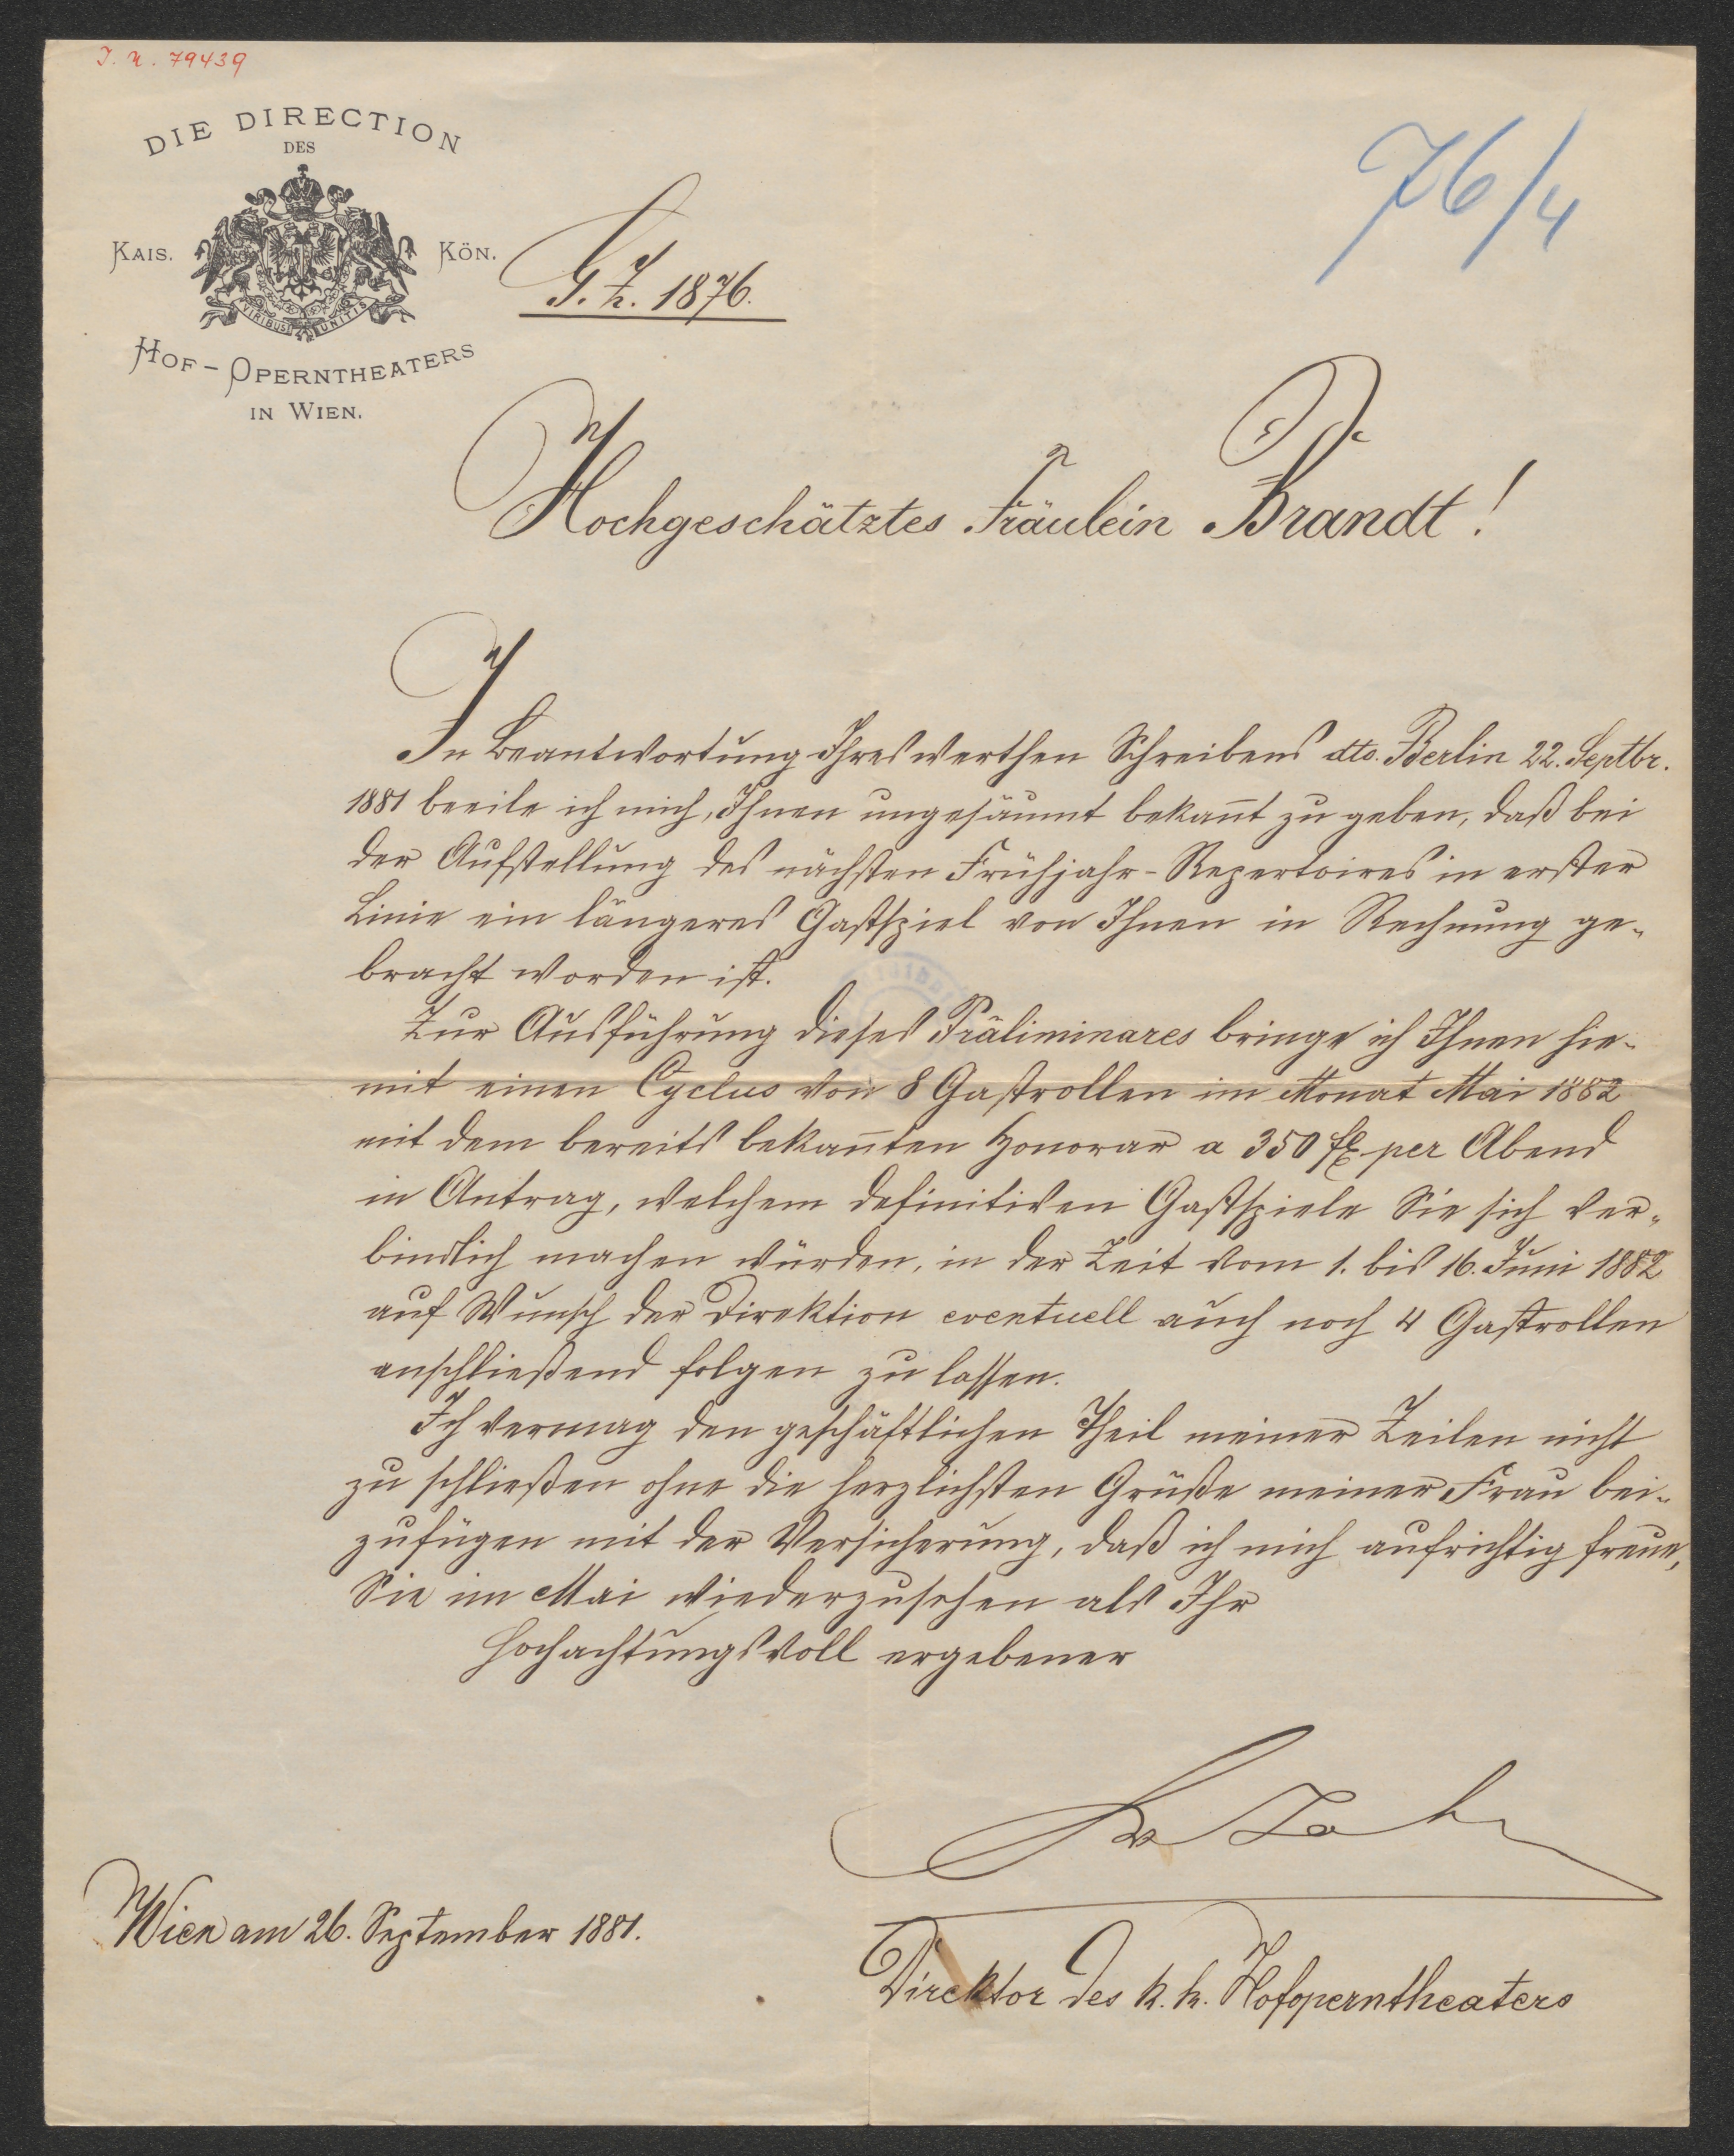 J. N. 79439
DIE DIRECTION
DES
KAIS. KÖN.
VIRIBUS UNITIS
HOF-OPERNTHEATERS
IN WIEN.
G. Z. 1876.
76/4
Hochgeschätztes Fräulein Brandt!
In Beantwortung Ihres werthen Schreibens dto. Berlin 22. Septbr.
1881 beeile ich mich, Ihnen ungesäumt bekañt zu geben, daß bei
der Aufstellung des nächsten Frühjahr-Repertoires in erster
Linie ein längeres Gastspiel von Ihnen in Rechnung ge-
bracht worden ist.
Zur Ausführung dieses Präliminares bringe ich Ihnen hie-
mit einen Cyclus von 8 Gastrollen im Monat Mai 1882
mit dem bereits bekañten Honorar a 350 fl. per Abend
in Antrag, welchem definitiven Gastspiele Sie sich ver-
bindlich machen würden, in der Zeit vom 1. bis 16. Juni 1882
auf Wunsch der Direktion eventuell auch noch 4 Gastrollen
anschließend folgen zu lassen.
Ich vermag den geschäftlichen Theil meiner Zeilen nicht
zu schließen ohne die herzlichsten Grüße meiner Frau bei-
zufügen mit der Versicherung, daß ich mich aufrichtig freue,
Sie im Mai wiederzusehen als Ihr
hochachtungsvoll ergebener
Wien am 26. September 1881.
Direktor des k. k. Hofoperntheaters